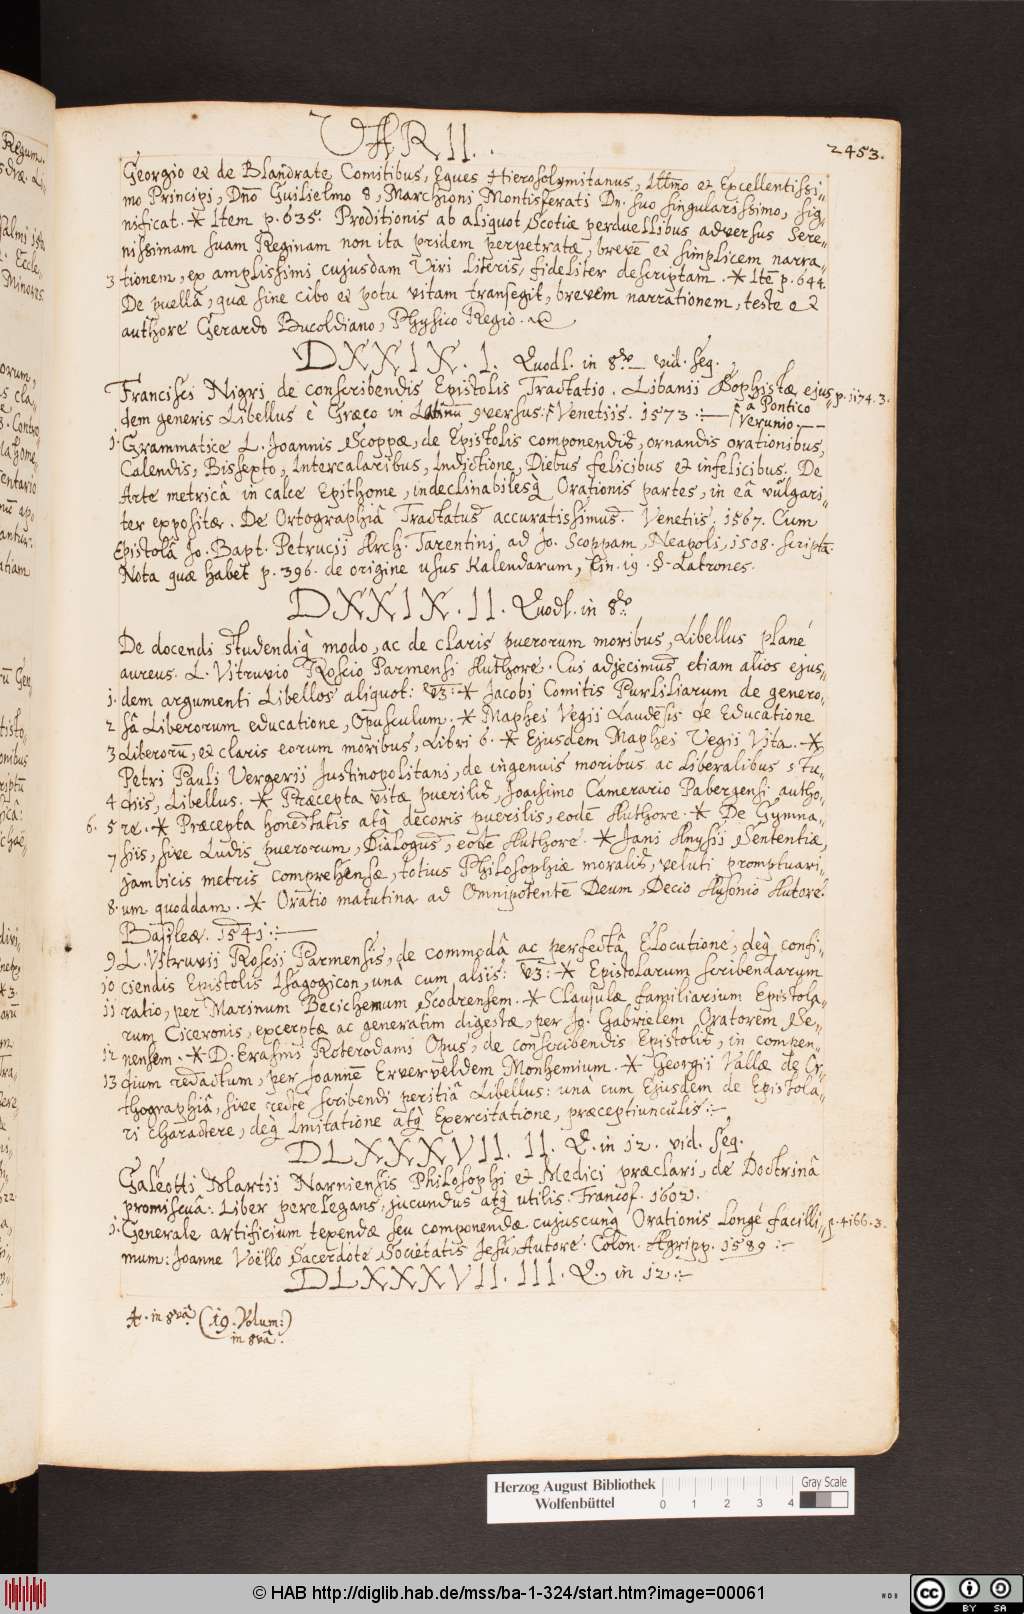 VAR II.
2453.
Georgio ex de Blandrate Comitibus, Eques Hierosolymitanus, Illmo et Excellentissi-
mo Principi, Dno Guilielmo 8, Marchioni Montisferati Dn. suo singularissimo, sig-
nificat. * Item p. 635. Proditionis ab aliquot Scotiæ perduellibus adversus Sere-
nissimam suam Reginam non ita pridem perpetratæ, brevē et simplicem narra-
3 tionem, ex amplissimi cujusdam Viri literis, fideliter descriptam. * Itē p. 644.
De puella, quæ sine cibo et potu vitam transegit, brevem narrationem, teste et
authore Gerardo Bucoldiano, Physico Regio.
DXXIX. I. Quodl. in 8vo vid. seg.
Francisci Nigri de conscribendis Epistolis Tractatio. Libanii Sophistæ ejus- p. 1174. 3.
dem generis Libellus è Græco in Latinū versus: Venetiis. 1573. a Pontico
Verunio.
1. Grammatice L. Joannis Scoppæ, de Epistolis componendis, ornandis orationibus,
Calendis, Bissexto, Intercalaribus, Indictione, Diebus felicibus et infelicibus: De
Arte metricâ in calce Epithome, indeclinabilesq̃ Orationis partes, in eâ vulgari-
ter expositæ. De Ortographiâ Tractatus accuratissimus. Venetiis, 1567. Cum
Epistolâ Jo. Bapt. Petrucii Arch. Tarentini ad Jo. Scoppam, Neapoli, 1508. scripta.
Nota quæ habet p. 396. de origine usus Kalendarum, lin. 19. Latrones.
DXXIX. II. Quodl. in 8vo
De docendi studendiq̃ modo, ac de claris puerorum moribus, Libellus planè
aureus. L. Vitruvio Roscio Parmensi Authore. Cui adjecimus etiam alios ejus-
1. dem argumenti Libellos aliquot: vz. * Jacobi Comitis Purliliarum de genero-
2 sâ Liberorum educatione, Opusculum. * Maphei Vegii Laudēsis de Educatione
3 Liberorū, et claris eorum moribus, Libri 6. * Ejusdem Maphei Vegii Vita. *
Petri Pauli Vergerii Justinopolitani, de ingenuis moribus ac Liberalibus stu-
4 diis, Libellus. * Præcepta vitæ puerilis, Joachimo Camerario Pabergensi autho-
6. 5 re. * Præcepta honestatis atq̃ decoris puerilis, eodē Authore. * De Gymna-
7 siis, sive Ludis puerorum, Dialogus, eodē Authore. * Jani Anysii Sententiæ,
jambicis metris comprehensæ, totius Philosophiæ moralis, veluti promptuari-
8. um quoddam. * Oratio matutina ad Omnipotentē Deum, Decio Ausonio Autore.
Basileæ. 1541.
9 L. Vitruvii Roscii Parmensis, de commodâ ac perfectâ Elocutione, deq̃ confi-
10 ciendis Epistolis Isagogicon, una cum aliis: vz: * Epistolarum scribendarum
11 ratio, per Marinum Becichemum Scodrensem. * Clausulæ familiarium Epistola-
rum Ciceronis, excerptæ ac generatim digestæ, per Jo: Gabrielem Oratorem Se-
12 nensem. * D. Erasmi Roterodami Opus, de conscribendis Epistolis, in compen-
13 dium redactum, per Joannē Erverveldem Monhemium. * Georgii Vallæ de Or-
thographiâ, sive rectè scribendi peritiâ Libellus: unà cum Ejusdem de Epistola-
ri charactere, deq̃ Imitatione atq̃ Exercitatione, præceptiunculis:
DLXXXVII. II. Q. in 12. vid. seg.
Galeotti Martii Narniensis Philosophi et Medici præclari, de Doctrinâ
promiscuâ: Liber perelegans, jucundus atq̃ utilis: Francof. 1602.
1. Generale artificium texendæ seu componendæ cujuscunq̃ Orationis Longè facilli- p. 4166. 3.
mum: Joanne Voëllo Sacerdote Societatis Jesu, Autore. Colon. Agripp. 1589
DLXXXVII. III. Q., in 12.
A. in 8vâ (19. Volum:)
in 8vâ.
Herzog August Bibliothek
Wolfenbüttel
Gray Scale
0 1 2 3 4
© HAB http://diglib.hab.de/mss/ba-1-324/start.htm?image=00061
cc BY SA